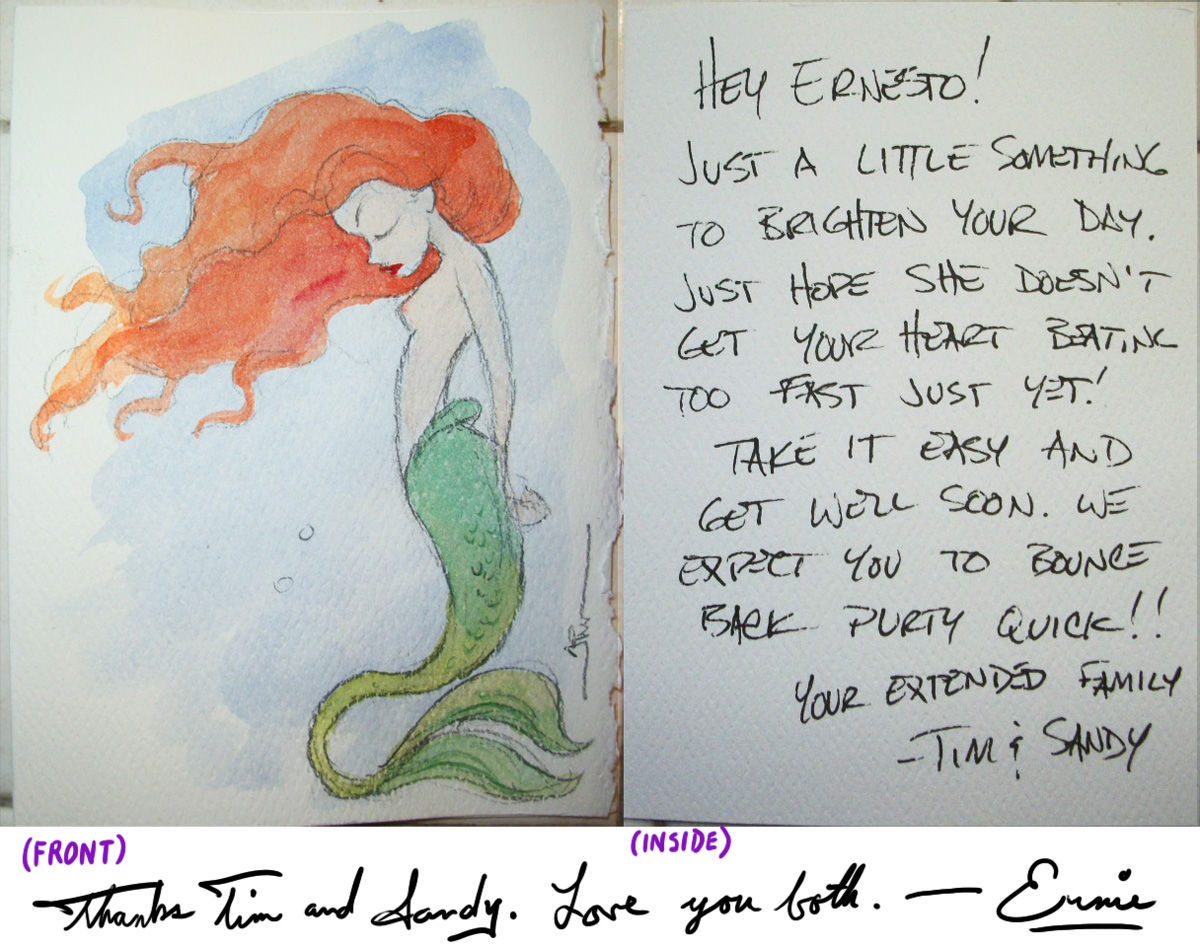 HEY ERNESTO!
JUST A LITTLE SOMETHING
TO BRIGHTEN YOUR DAY.
JUST HOPE SHE DOESN'T
GET YOUR HEART BEATING
TOO FAST JUST YET!
TAKE IT EASY AND
GET WELL SOON. WE
EXPECT YOU TO BOUNCE
BACK PURTY QUICK!!
YOUR EXTENDED FAMILY
-TIM & SANDY
(FRONT)
(INSIDE)
Thanks Tim and Sandy. Love you both. — Ernie